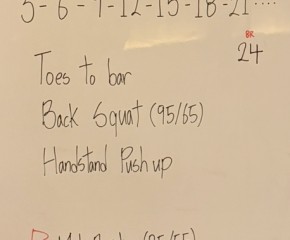 3-6-9-12-15-18-21....
BR
24
Toes to bar
Back Squat (95/65)
Handstand Pushup